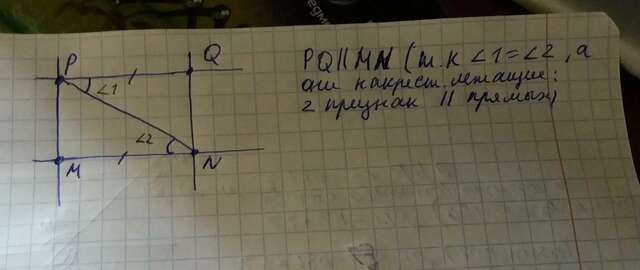 P
Q
∠1
∠2
M
N
PQ||MN (т.к ∠1=∠2, а
они накрест лежащие:
2 признак || прямых)